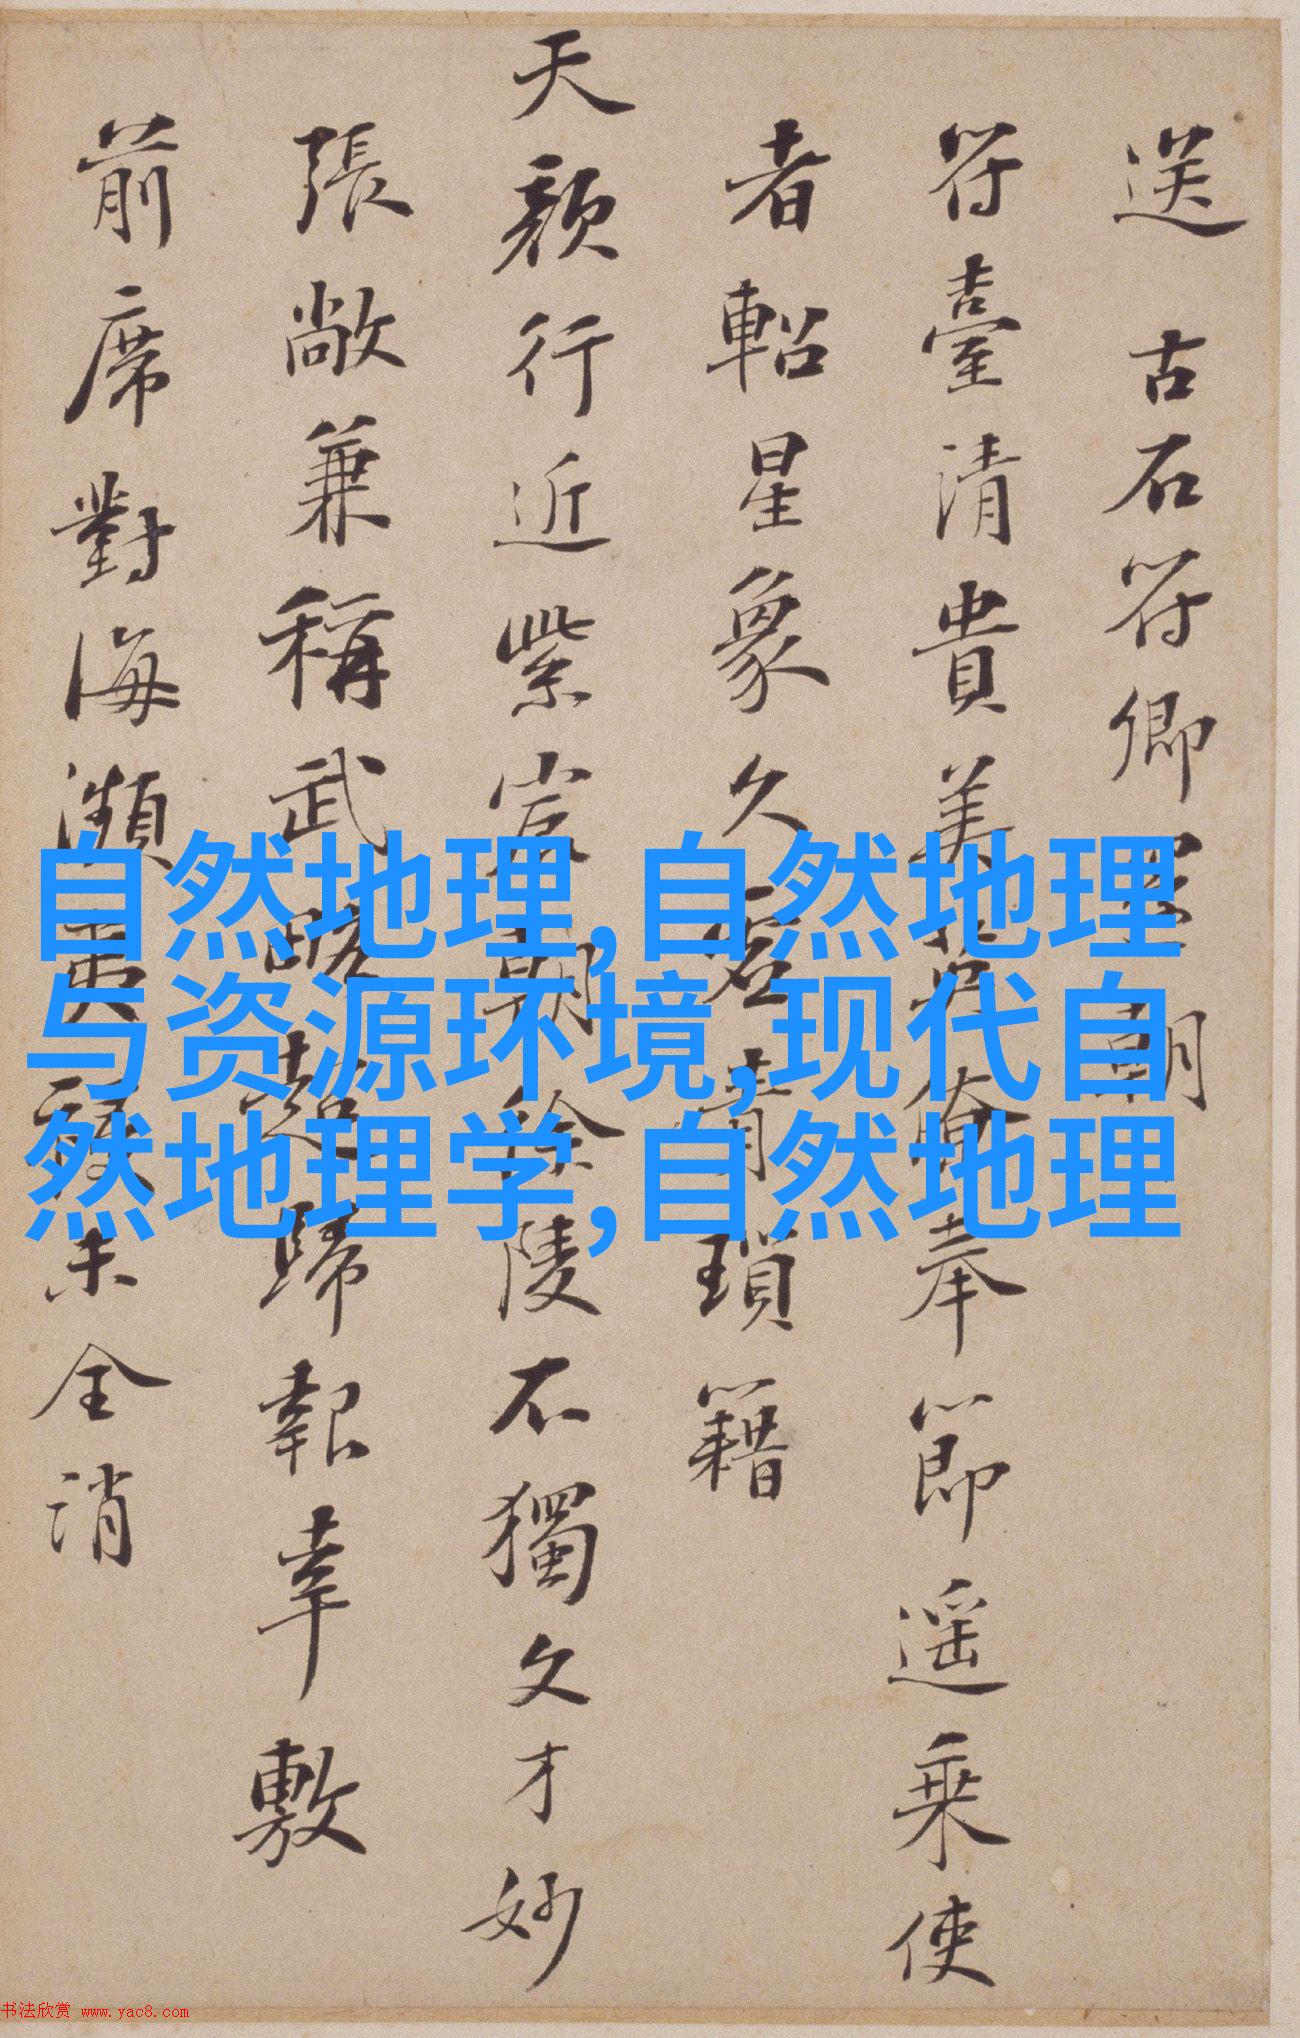 送 古石符卿 朝
符臺清貴美 僚奉節遥乘使
者軺星象久 青瑣籍
天顏行近紫宸朝徐陵不獨文才妙
張敞兼稱武略超歸報幸敷
前席對海瀕夷 未全消
自然地理,自然地理
与资源环境,现代自
然地理学,自然地理
书法欣赏 www.yac8.com